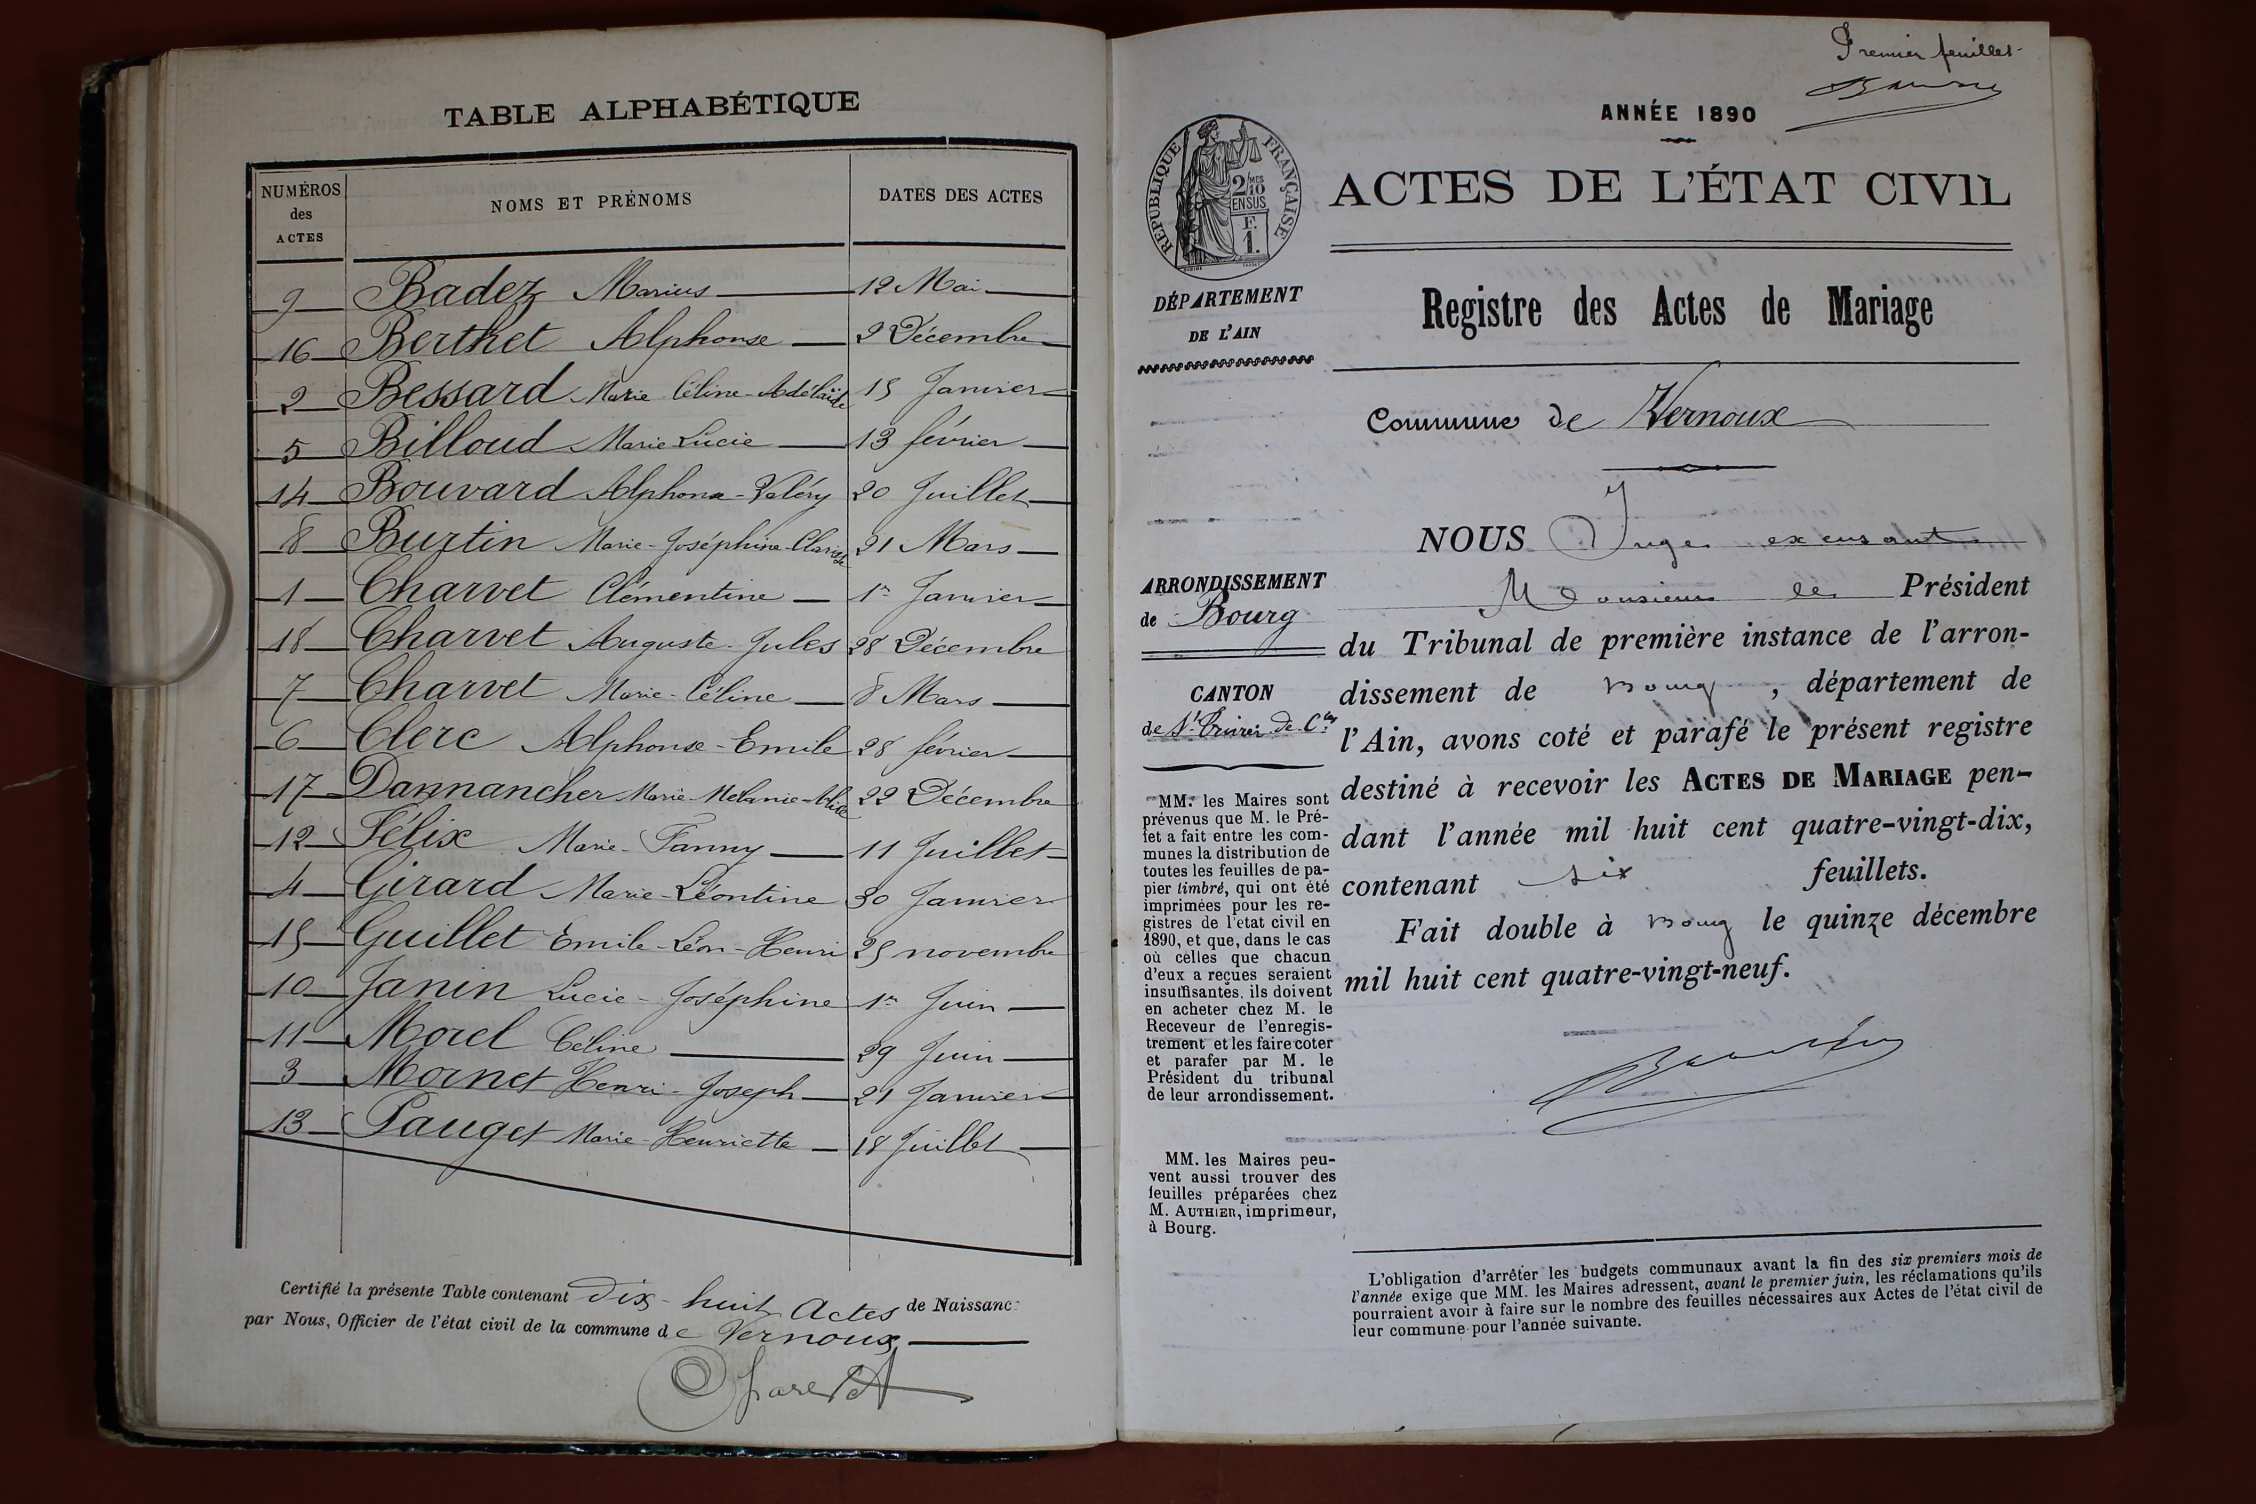 TABLE ALPHABÉTIQUE
NUMÉROS des ACTES
NOMS ET PRÉNOMS
DATES DES ACTES
9 Badez Marius 12 Mai
16 Berthet Alphonse 2 Décembre
2 Bessard Marie Céline-Adélaïde 15 Janvier
5 Billoud Marie Lucie 13 février
14 Bouvard Alphonse-Valéry 20 Juillet
8 Burtin Marie-Joséphine-Clarisse 21 Mars
1 Charvet Clémentine 1er Janvier
18 Charvet Auguste-Jules 28 Décembre
7 Charvet Marie-Céline 8 Mars
6 Clerc Alphonse-Emile 28 février
17 Dannancher Marie-Mélanie-Alice 22 Décembre
12 Félix Marie-Fanny 11 Juillet
4 Girard Marie-Léontine 30 Janvier
15 Guillet Emile-Léon-Henri 25 novembre
10 Janin Lucie-Joséphine 1er Juin
11 Morel Céline 29 Juin
3 Mornet Henri-Joseph 21 Janvier
13 Pauget Marie-Henriette 18 Juillet
Certifié la présente Table contenant dix-huit Actes de Naissance
par Nous, Officier de l'état civil de la commune de Vernoux
Premier feuillet
ANNÉE 1890
RÉPUBLIQUE FRANÇAISE
2/10 MES
EN SUS
F.
1.
ACTES DE L'ÉTAT CIVIL
DÉPARTEMENT
DE L'AIN
Registre des Actes de Mariage
Commune de Vernoux
ARRONDISSEMENT
de Bourg
CANTON
de St Trivier de Ctes
MM. les Maires sont
prévenus que M. le Pré-
fet a fait entre les com-
munes la distribution de
toutes les feuilles de pa-
pier timbré, qui ont été
imprimées pour les re-
gistres de l'état civil en
1890, et que, dans le cas
où celles que chacun
d'eux a reçues seraient
insuffisantes, ils doivent
en acheter chez M. le
Receveur de l'enregis-
trement et les faire coter
et parafer par M. le
Président du tribunal
de leur arrondissement.
MM. les Maires peu-
vent aussi trouver des
feuilles préparées chez
M. AUTHIER, imprimeur,
à Bourg.
NOUS Juge excusant
Monsieur le Président
du Tribunal de première instance de l'arron-
dissement de Bourg, département de
l'Ain, avons coté et parafé le présent registre
destiné à recevoir les ACTES DE MARIAGE pen-
dant l'année mil huit cent quatre-vingt-dix,
contenant six feuillets.
Fait double à Bourg le quinze décembre
mil huit cent quatre-vingt-neuf.
L'obligation d'arrêter les budgets communaux avant la fin des six premiers mois de
l'année exige que MM. les Maires adressent, avant le premier juin, les réclamations qu'ils
pourraient avoir à faire sur le nombre des feuilles nécessaires aux Actes de l'état civil de
leur commune pour l'année suivante.